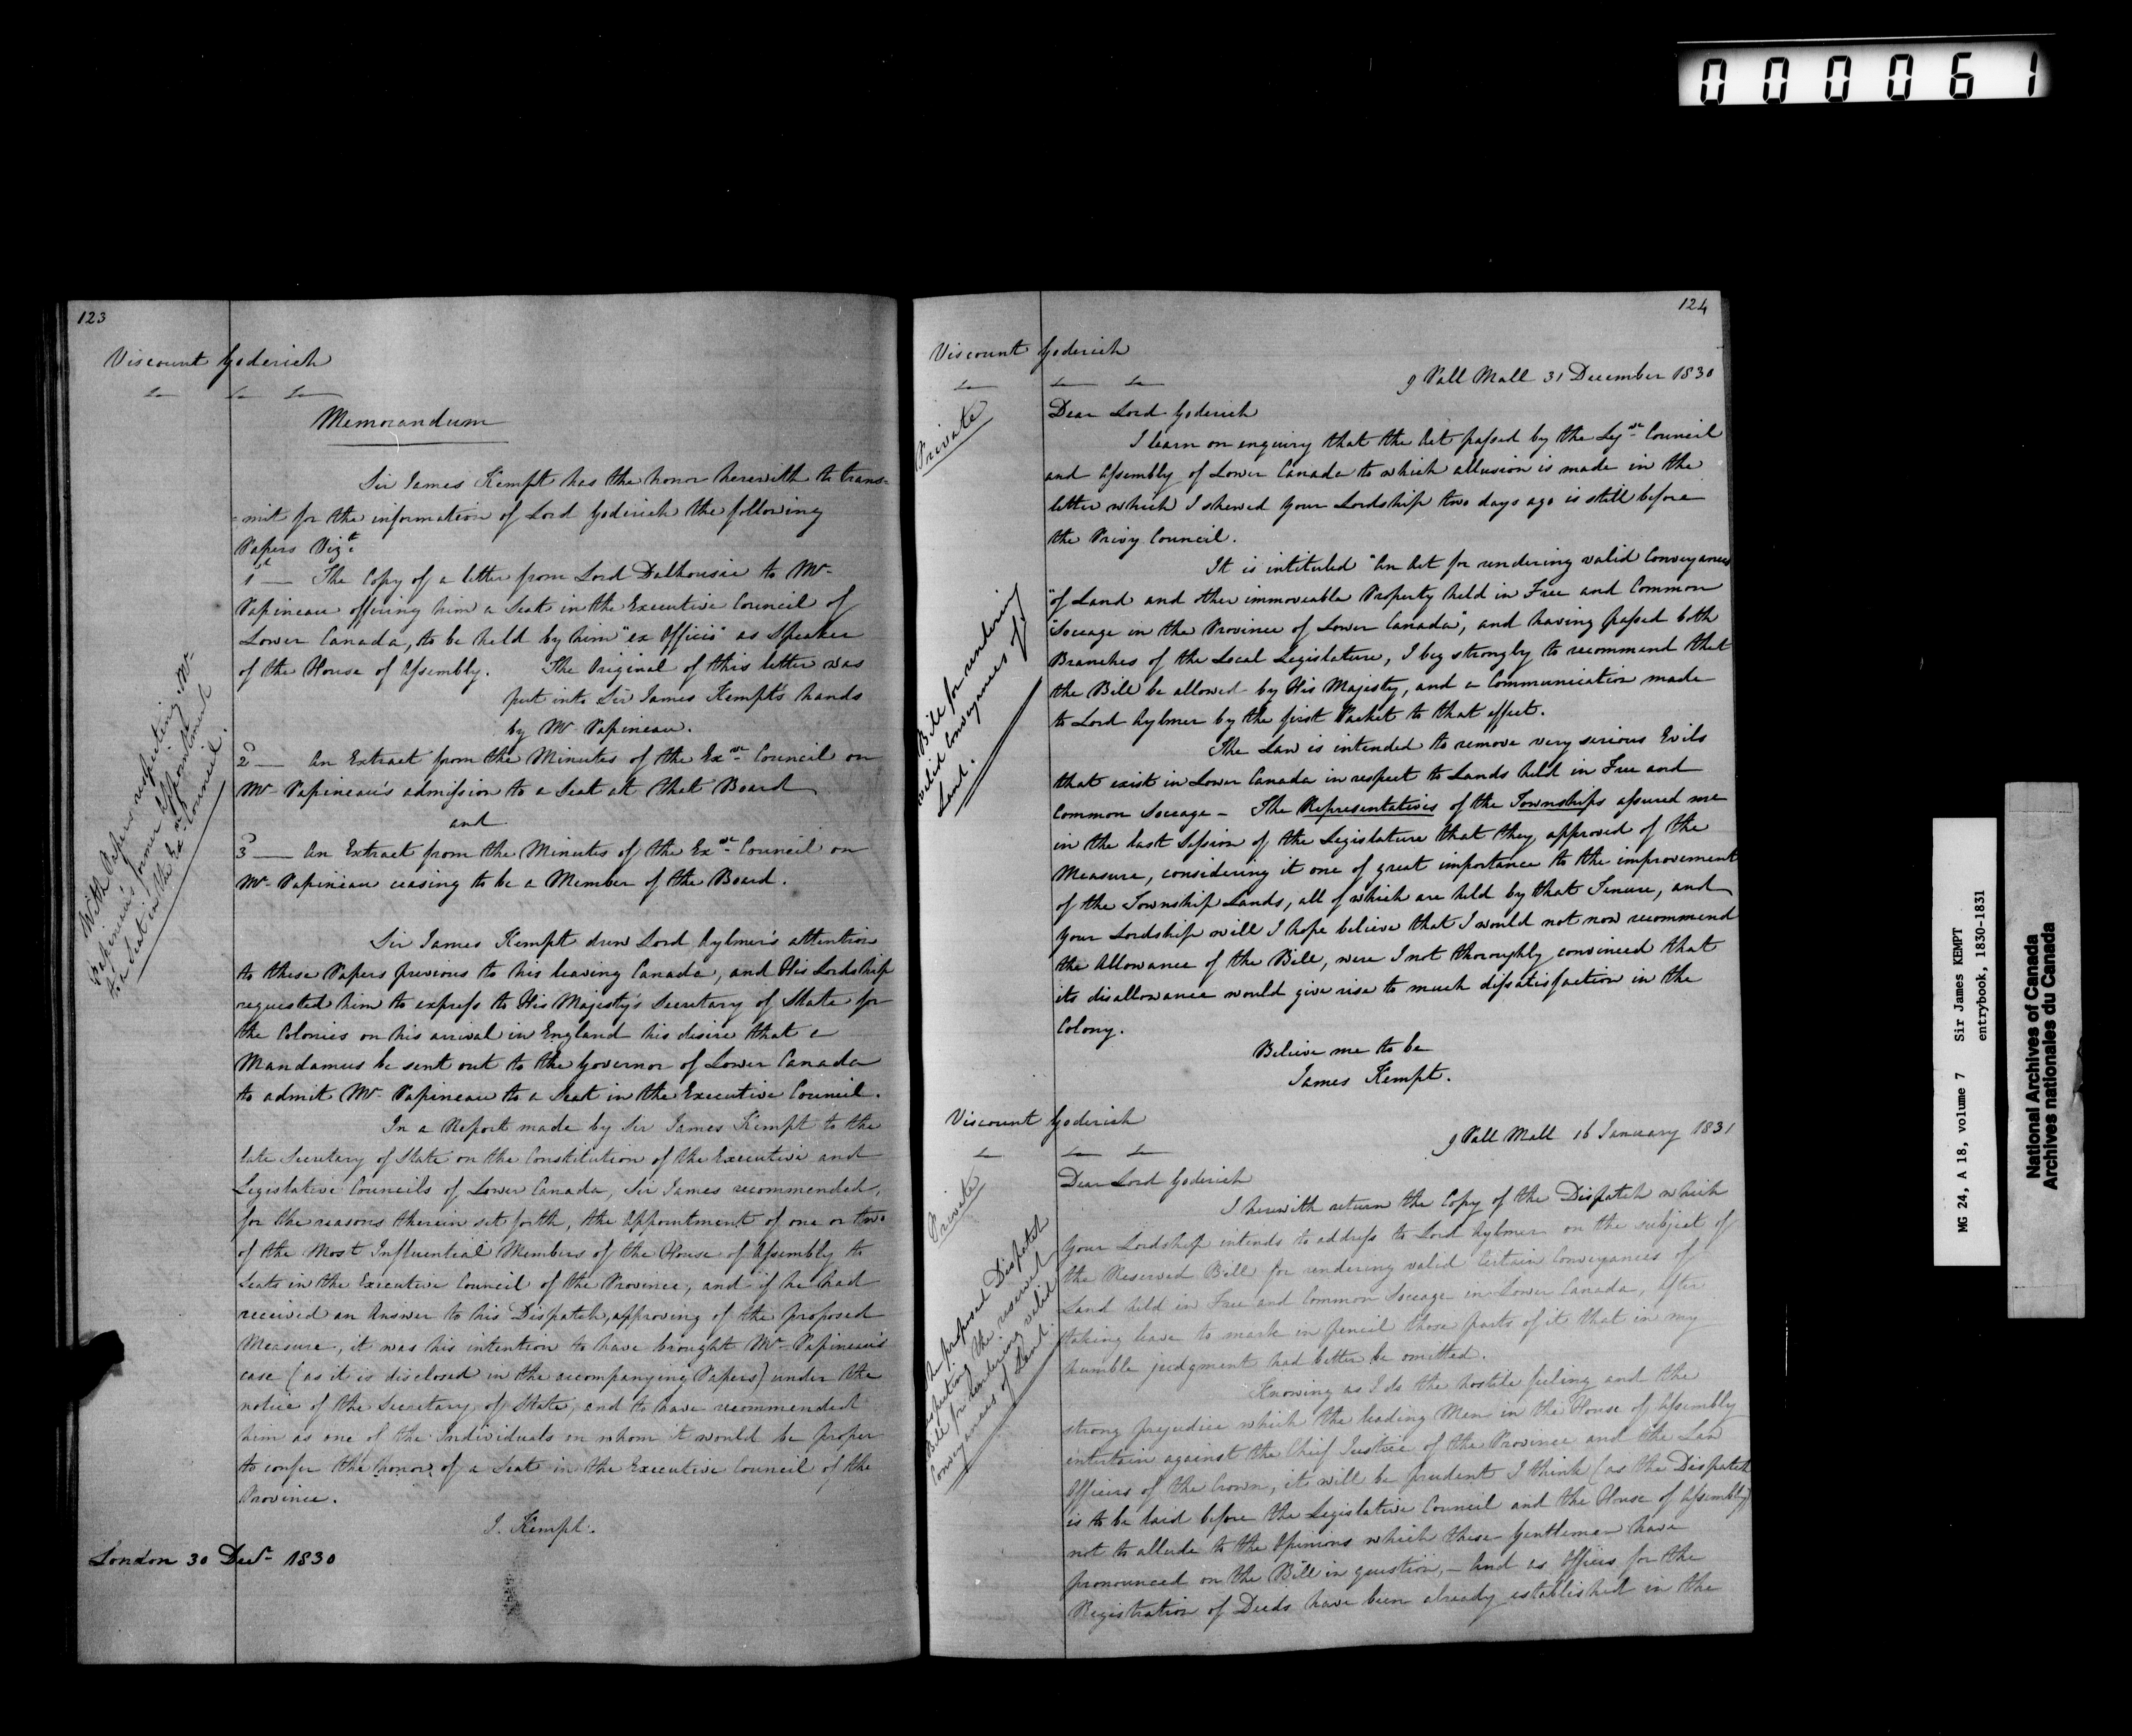 000061
123
Viscount Goderich
Memorandum
Sir James Kempt has the honor herewith to trans=
=mit for the information of Lord Goderich the following
Papers Vizt.
1st — The Copy of a letter from Lord Dalhousie to Mr
Papineau offering him a Seat in the Executive Council of
Lower Canada, to be held by him "ex Officio" as Speaker
of the House of Assembly. The Original of this letter was
put into Sir James Kempt's hands
by Mr Papineau.
2d — An Extract from the Minutes of the Exve Council on
Mr Papineau's admission to a Seat at that Board
and
3d — An Extract from the Minutes of the Exve Council on
Mr Papineau ceasing to be a Member of the Board.
With Papers respecting Mr
Papineau's former appointment
to a Seat in the Exve Council.
Sir James Kempt drew Lord Aylmer's attention
to these Papers previous to his leaving Canada, and His Lordship
requested him to express to His Majesty's Secretary of State for
the Colonies on his arrival in England his desire that a
Mandamus be sent out to the Governor of Lower Canada
to admit Mr Papineau to a Seat in the Executive Council.
In a Report made by Sir James Kempt to the
late Secretary of State on the Constitution of the Executive and
Legislative Councils of Lower Canada, Sir James recommended,
for the reasons therein set forth, the appointment of one or two
of the Most Influential Members of the House of Assembly to
Seats in the Executive Council of the Province, and if he had
received an Answer to his Dispatch, approving of the proposed
Measure, it was his intention to have brought Mr Papineau's
case (as it is disclosed in the accompanying Papers) under the
notice of the Secretary of State, and to have recommended
him as one of the Individuals on whom it would be proper
to confer the honor of a Seat in the Executive Council of the
Province.
J. Kempt.
London 30 Decr 1830
124
Viscount Goderich
9 Pall Mall 31 December 1830
Private
Dear Lord Goderich
I learn on enquiry that the Act passed by the Legve Council
and Assembly of Lower Canada to which allusion is made in the
letter which I shewed your Lordship two days ago is still before
the Privy Council.
It is intituled "An Act for rendering valid Conveyances
"of Land and other immoveable Property held in Free and Common
"Soccage in the Province of Lower Canada", and having passed both
Branches of the Local Legislature, I beg strongly to recommend that
the Bill be allowed by His Majesty, and a Communication made
to Lord Aylmer by the first Packet to that effect.
Bill for rendering
valid Conveyances of
Land.
The Law is intended to remove very serious Evils
that exist in Lower Canada in respect to Lands held in Free and
Common Soccage — The Representatives of the Townships assured me
in the last Session of the Legislature that they approved of the
Measure, considering it one of great importance to the improvement
of the Township Lands, all of which are held by that Tenure, and
your Lordship will I hope believe that I would not now recommend
the Allowance of the Bill, were I not thoroughly convinced that
its disallowance would give rise to much dissatisfaction in the
Colony.
Believe me to be
James Kempt.
Viscount Goderich
9 Pall Mall 16 January 1831
Private
Dear Lord Goderich
I herewith return the Copy of the Dispatch which
your Lordship intends to address to Lord Aylmer on the subject of
the Reserved Bill for rendering valid Certain Conveyances of
Land held in Free and Common Soccage in Lower Canada, after
taking leave to mark in pencil those parts of it that in my
humble judgment had better be omitted.
proposed Dispatch
respecting the reserved
Bill for rendering valid
Conveyances of Land.
Knowing as I do the hostile feeling and the
strong prejudice which the leading Men in the House of Assembly
entertain against the Chief Justice of the Province and the Law
Officers of the Crown, it will be prudent I think (as the Dispatch
is to be laid before the Legislative Council and the House of Assembly)
not to allude to the Opinions which these Gentlemen have
pronounced on the Bill in question, — And as Offices for the
Registration of Deeds have been already established in the
MG 24, A 18, volume 7 Sir James KEMPT
entrybook, 1830-1831
National Archives of Canada
Archives nationales du Canada